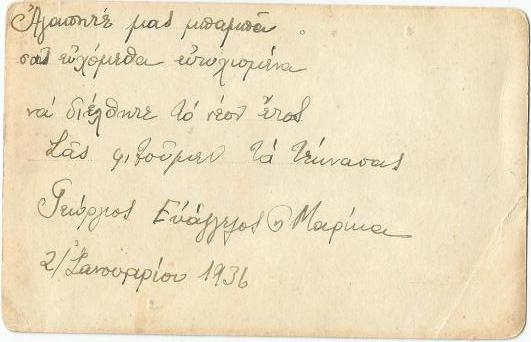 Ἀγαπητέ μας μπαμπᾶ
σας εὐχόμεθα εὐτυχισμένα
νά διέλθητε τό νέον ἔτος
Σᾶς φιλοῦμεν τά τέκνασας
Γεώργιος Εὐάγγελος Μαρίκα
2/Ἰανουαρίου 1936